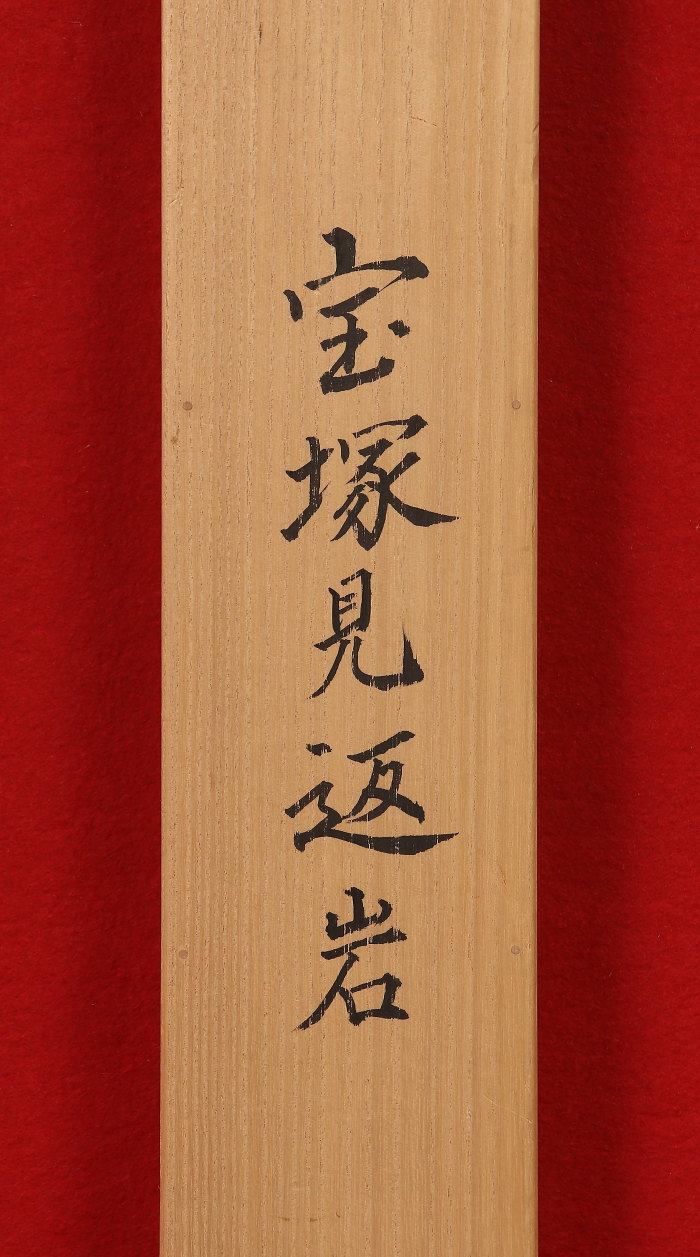 宝塚見返岩